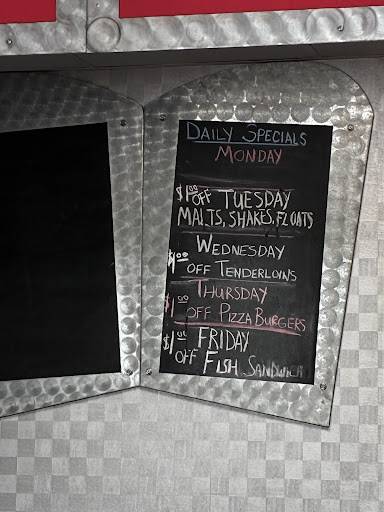 DAILY SPECIALS
MONDAY
$1.00 OFF TUESDAY
MALTS, SHAKES, FLOATS
WEDNESDAY
$1.00 OFF TENDERLOINS
THURSDAY
$1.00 OFF PIZZA BURGERS
$1.00 OFF FRIDAY
FISH SANDWICH